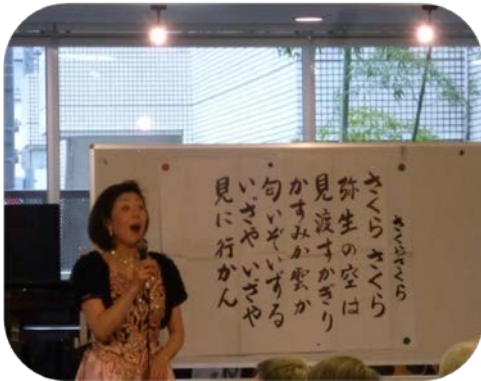 さくらさくら
さくら さくら
弥生の空は
見渡すかぎり
かすみか雲か
匂いぞいずる
いざや いざや
見に行かん